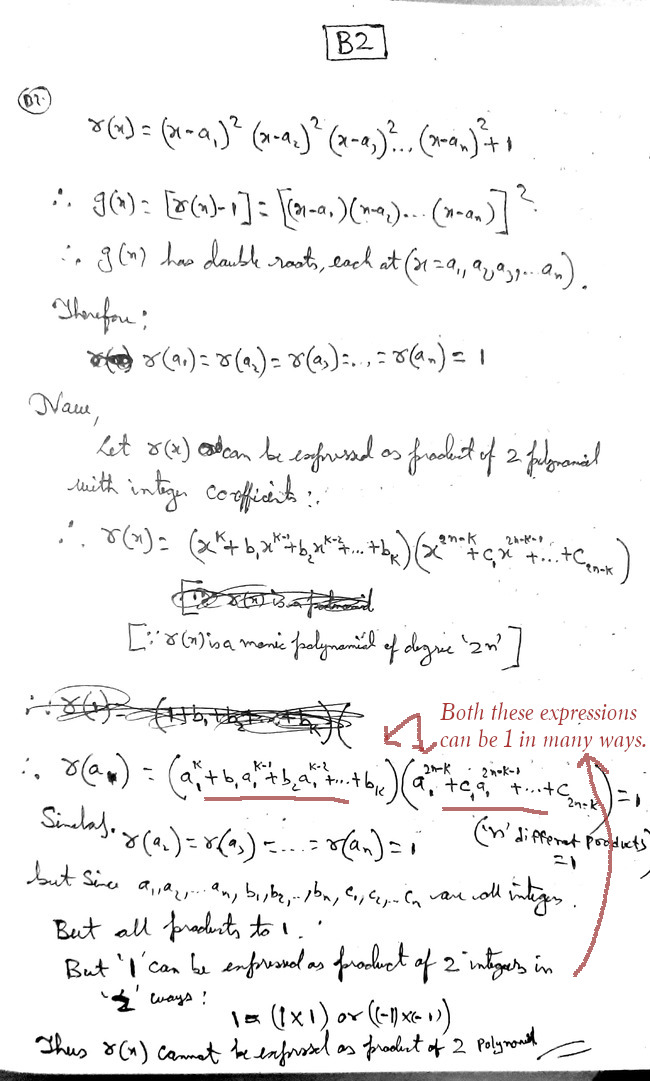 B2
B2.
r(x) = (x-a₁)² (x-a₂)² (x-a₃)²... (x-aₙ)² + 1
∴ g(x) = [r(x)-1] = [(x-a₁)(x-a₂)... (x-aₙ)]².
∴ g(x) has double roots, each at (x = a₁, a₂, a₃, ... aₙ).
Therefore:
r(a₁) = r(a₂) = r(a₃) = ... = r(aₙ) = 1
Now,
Let r(x) can be expressed as product of 2 polynomial
with integer coefficients:
∴ r(x) = (x^k + b₁x^(k-1) + b₂x^(k-2) + ... + b_k)(x^(2n-k) + c₁x^(2n-k-1) + ... + c_(2n-k))
[∵ r(x) is a monic polynomial of degree '2n']
Both these expressions
can be 1 in many ways.
∴ r(a₁) = (a₁^k + b₁a₁^(k-1) + b₂a₁^(k-2) + ... + b_k)(a₁^(2n-k) + c₁a₁^(2n-k-1) + ... + c_(2n-k)) = 1
Similar. r(a₂) = r(a₃) = ... = r(aₙ) = 1
('n' different products
= 1
but since a₁, a₂, ... aₙ, b₁, b₂, .., bₙ, c₁, c₂, .. cₙ are all integers.
But all products to 1.
But '1' can be expressed as product of 2 integers in
'2' ways:
1 = (1×1) or ((-1)×(-1))
Thus r(x) cannot be expressed as product of 2 polynomial